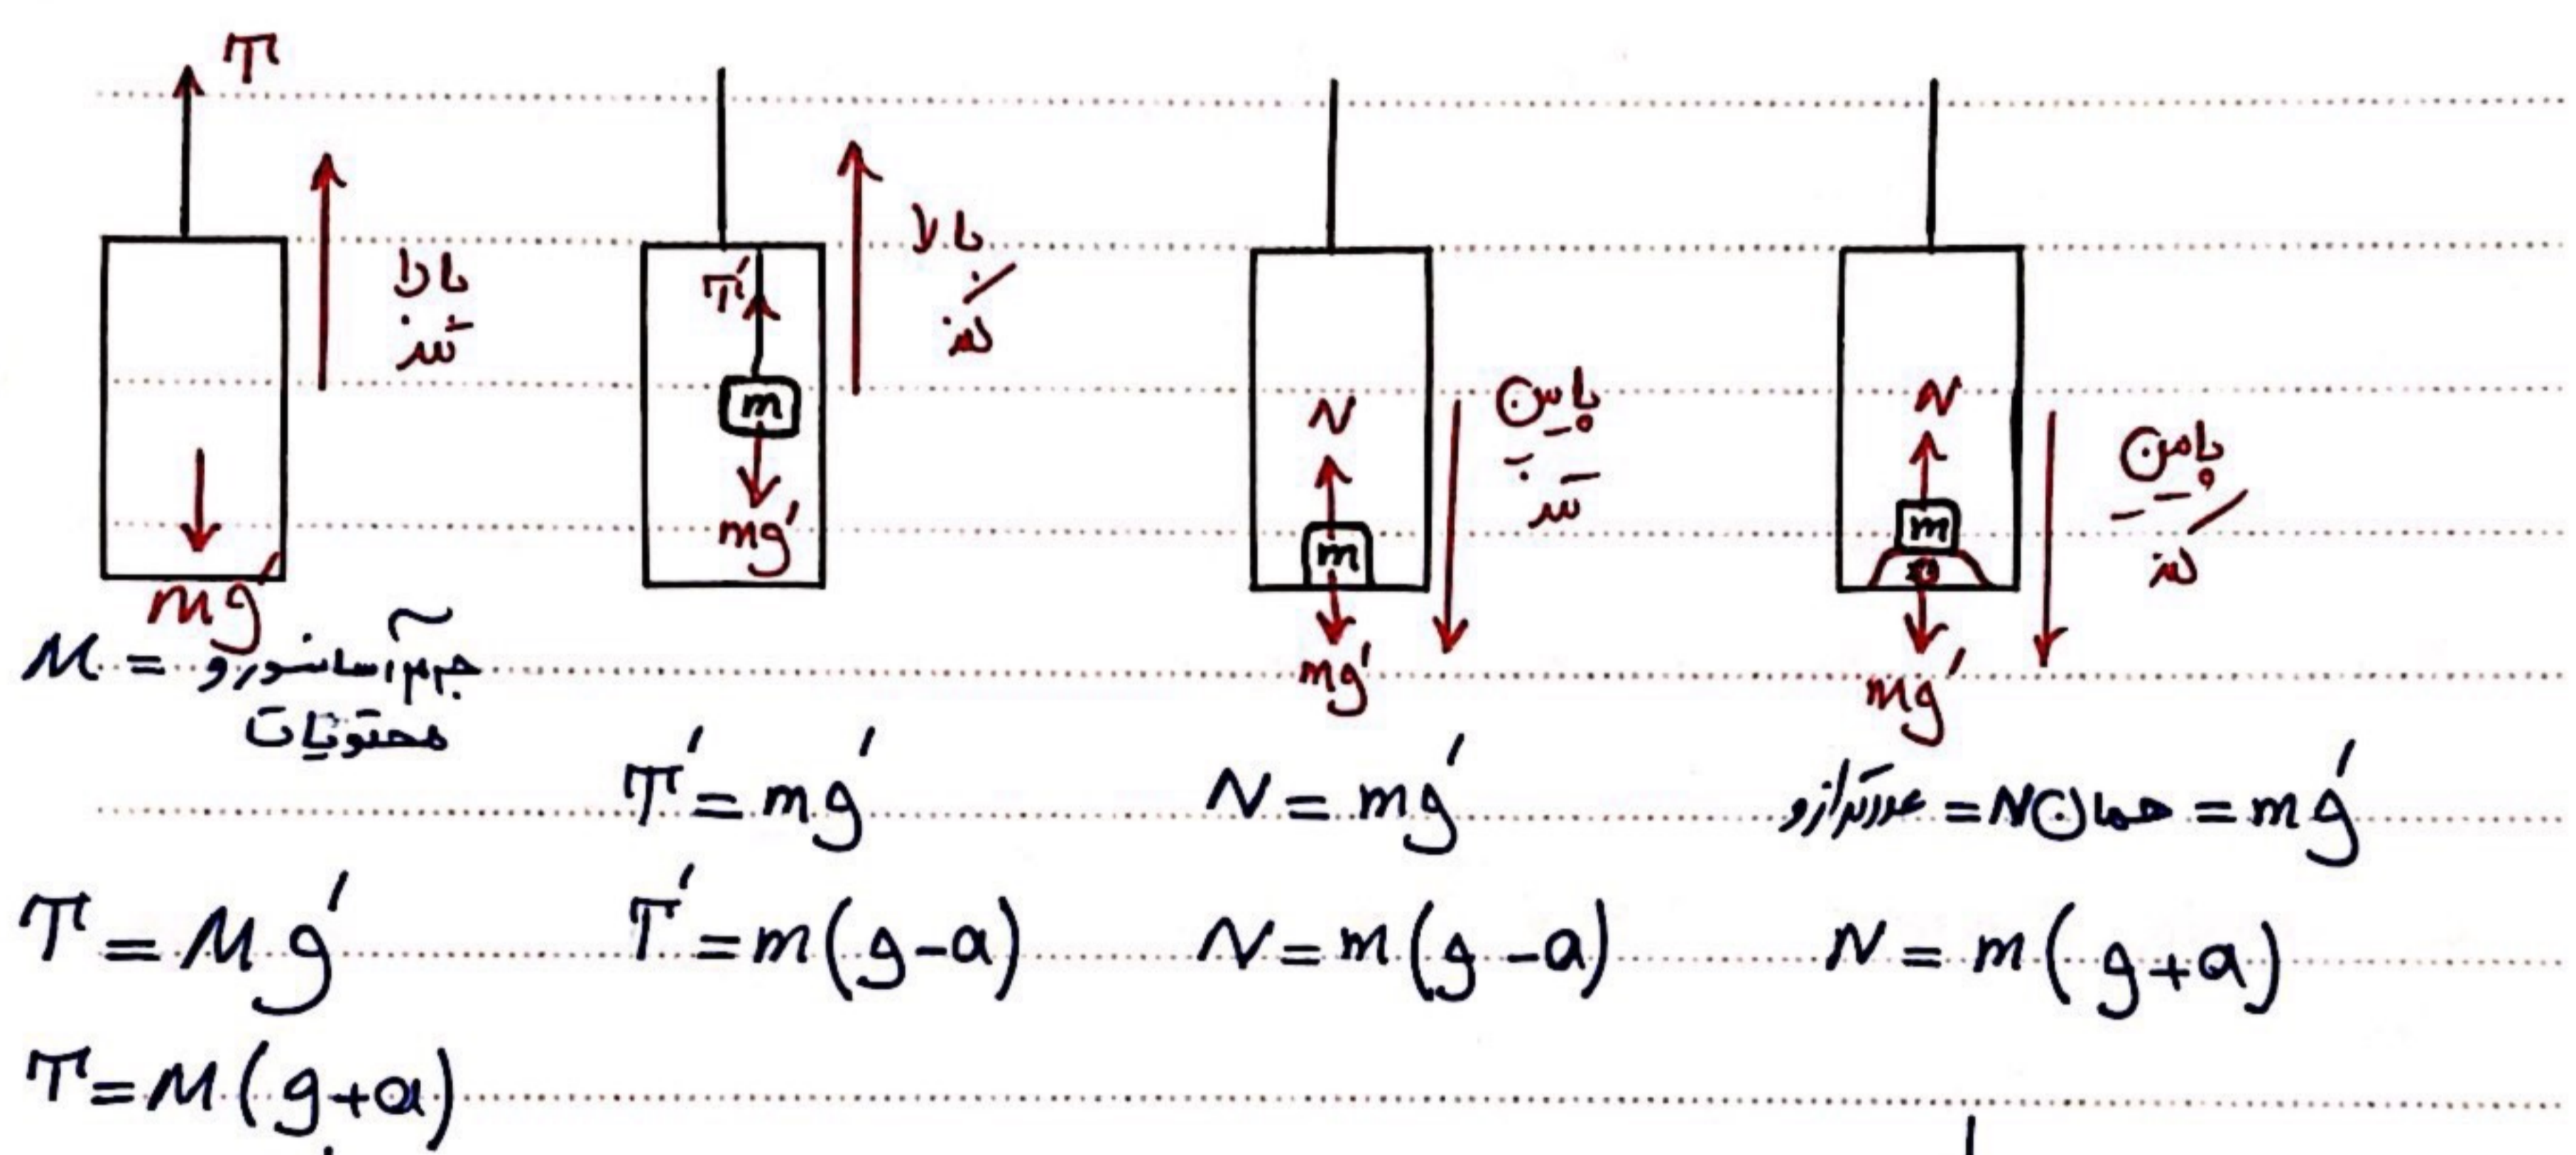 T
بالا
تند
mg'
M = جرم آسانسور و
محتویات
T = Mg'
T = M(g+a)
بالا
کند
T'
m
mg'
T' = mg'
T' = m(g-a)
پایین
تند
N
m
mg'
N = mg'
N = m(g-a)
پایین
کند
N
m
mg'
عدد ترازو = همان N = mg'
N = m(g+a)